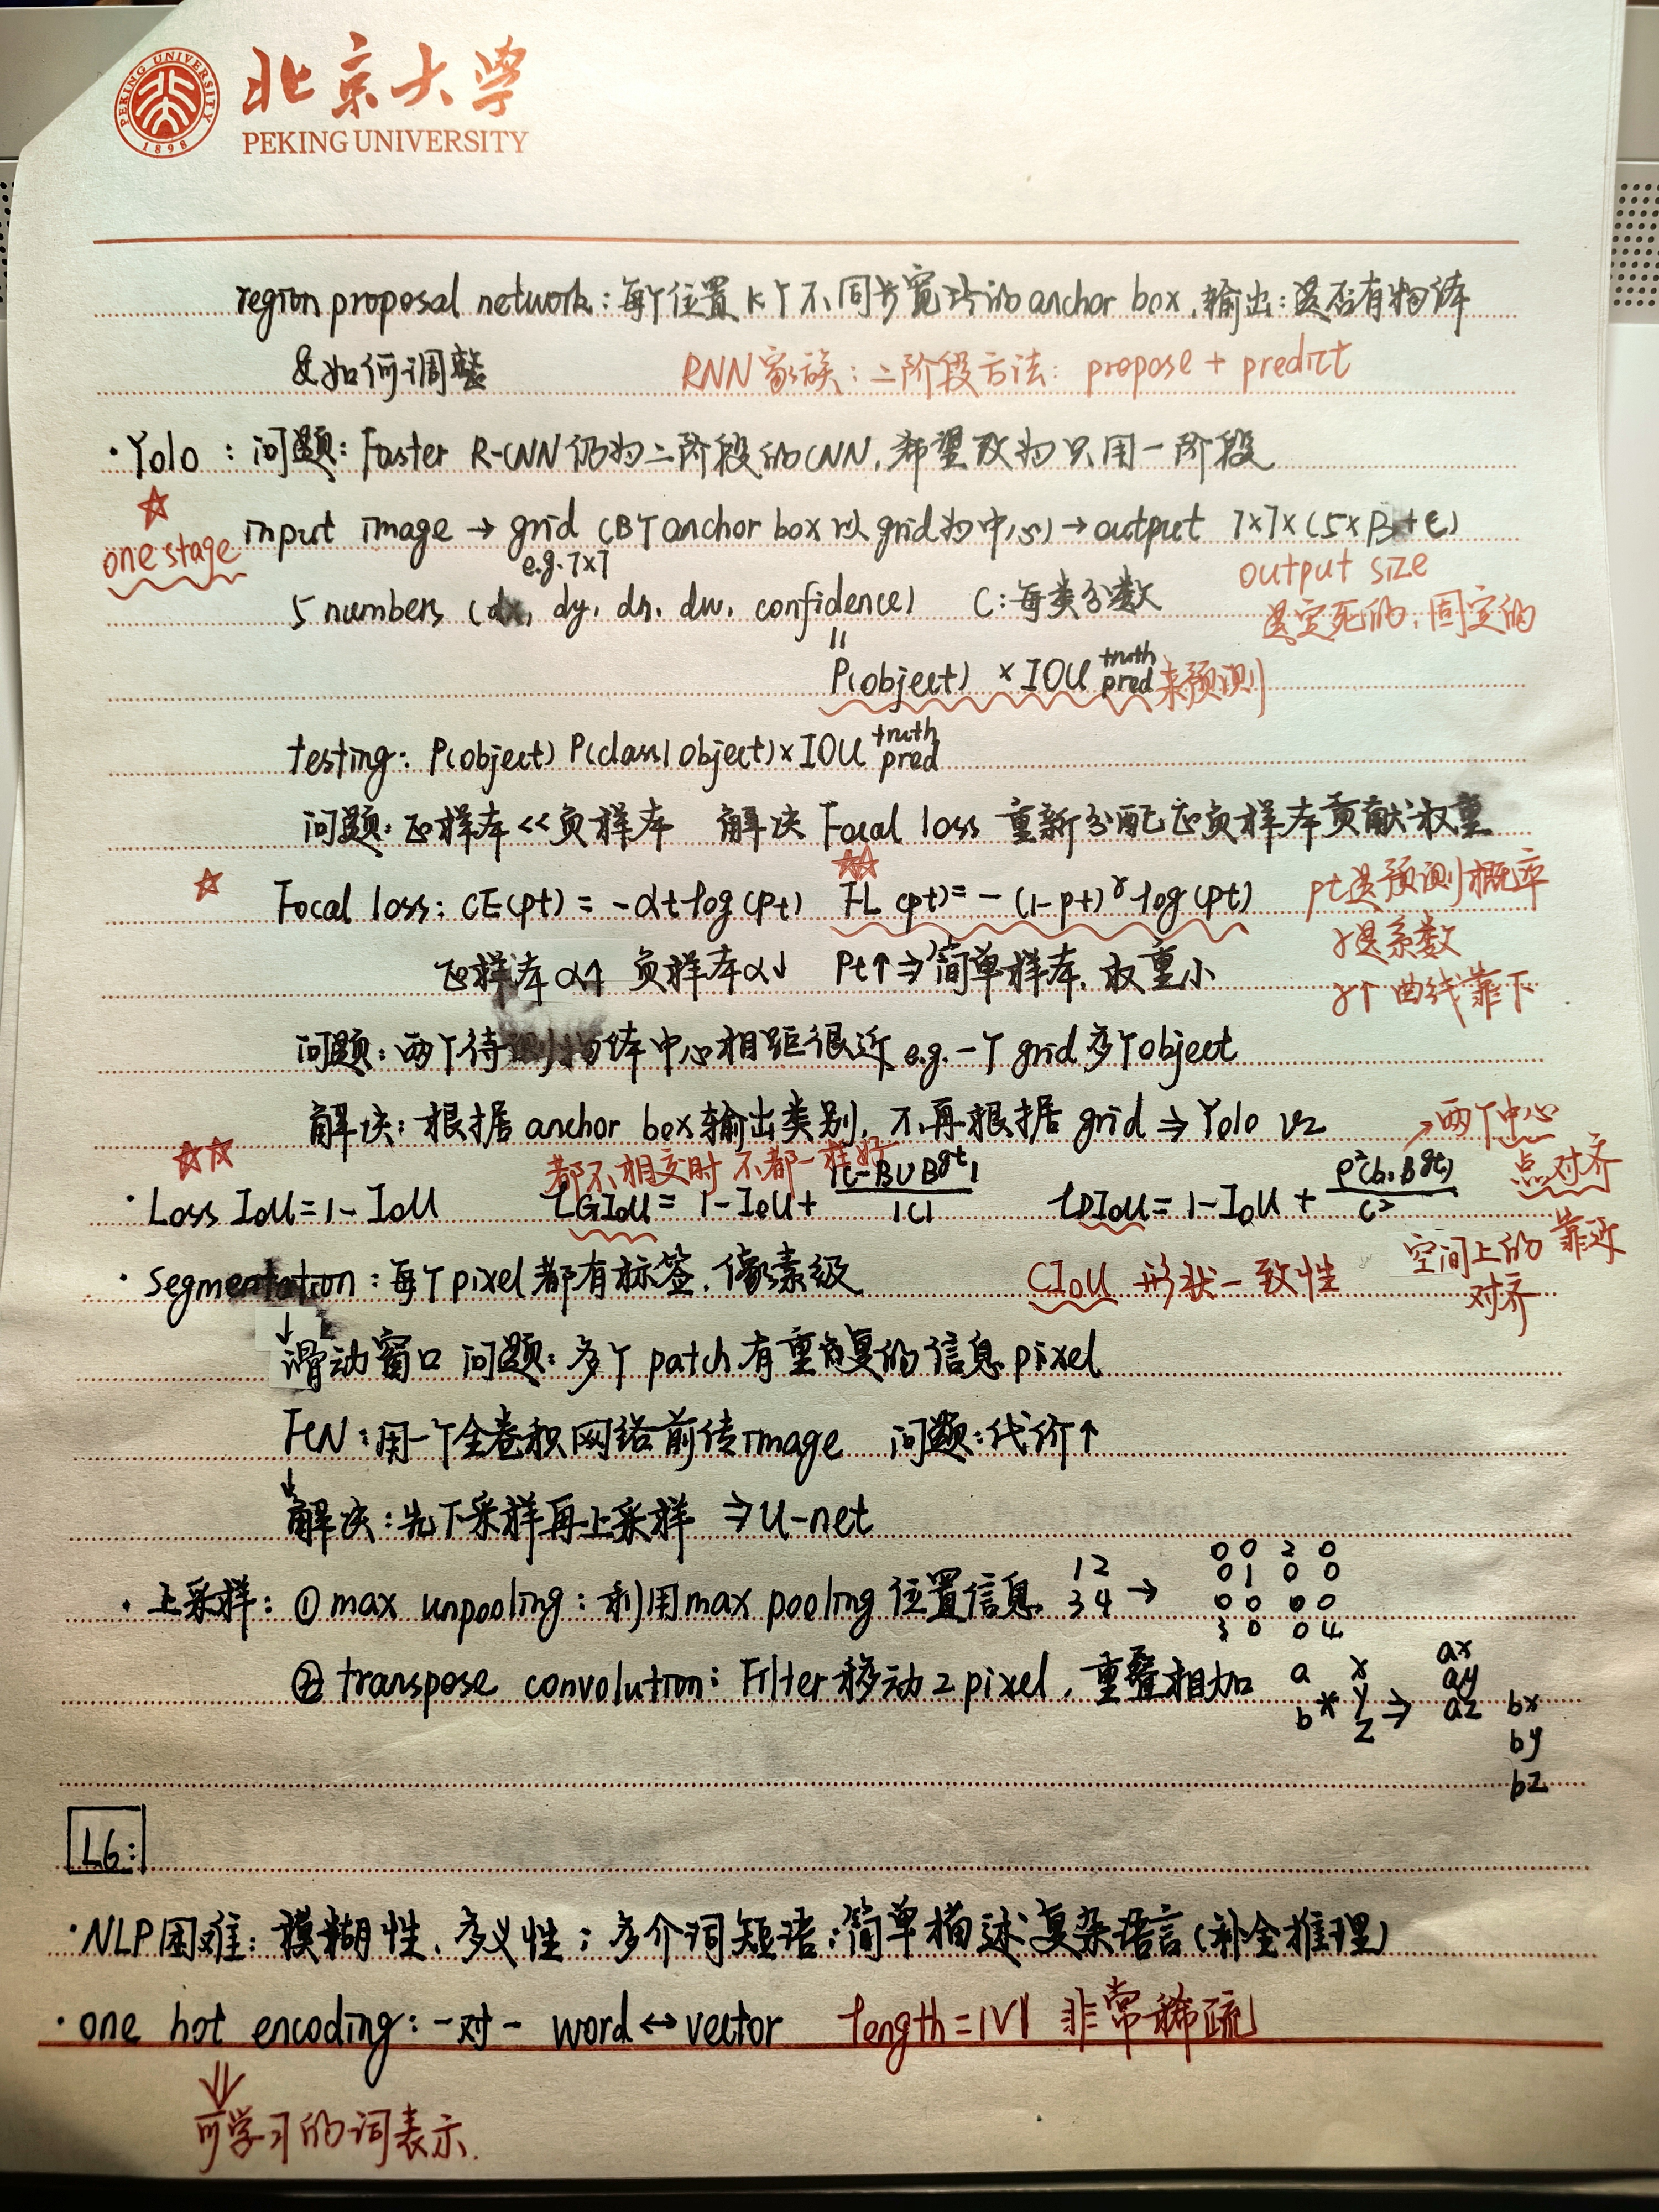 PEKING UNIVERSITY 1898
北京大学
PEKING UNIVERSITY
region proposal network：每个位置K个不同长宽比的anchor box，输出：是否有物体
&如何调整 RNN家族：二阶段方法：propose + predict
·Yolo：问题：Faster R-CNN仍为二阶段的CNN，希望改为只用一阶段
☆ input image → grid (B个anchor box以grid为中心) → output 7×7×(5×B+C)
one stage e.g. 7×7 output size
5 numbers (dx, dy, dh, dw, confidence) C：每类分数 是定死的，固定的
||
P(object) × IOU truth pred 来预测
testing: P(object) P(class|object) × IOU truth pred
问题：正样本<<负样本 解决 Focal loss 重新分配正负样本贡献权重
☆ ☆☆
Focal loss: CE(pt) = -αt log(pt) FL(pt) = -(1-pt)^γ log(pt) pt是预测概率
γ是系数
正样本α↑ 负样本α↓ Pt↑⇒简单样本，权重小 γ↑ 曲线靠下
问题：两个待测物体中心相距很近 e.g. 一个grid多个object
解决：根据anchor box输出类别，不再根据grid ⇒ Yolo v2 →两个中心
☆☆ 都不相交时 不都一样好 点对齐
·Loss IoU = 1 - IoU LGIoU = 1 - IoU + |C - B∪B^gt| / |C| LDIoU = 1 - IoU + ρ²(b, B^gt) / C² 靠近
·Segmentation：每个pixel都有标签，像素级 CIoU 形状一致性 空间上的
对齐
↓
滑动窗口 问题：多个patch有重复的信息pixel
FCN：用一个全卷积网络前传image 问题：代价↑
↓
解决：先下采样再上采样 ⇒ U-net
·上采样：① max unpooling：利用max pooling位置信息 1 2 → 0 0 2 0
3 4 0 1 0 0
0 0 0 0
3 0 0 4
② transpose convolution：Filter移动2pixel，重叠相加 a x ax
b * y ⇒ ay
z az bx
by
bz
L6：
·NLP困难：模糊性、多义性；多介词短语；简单描述复杂语言（补全推理）
·one hot encoding：一对一 word↔vector length=|V| 非常稀疏
⇓
可学习的词表示.